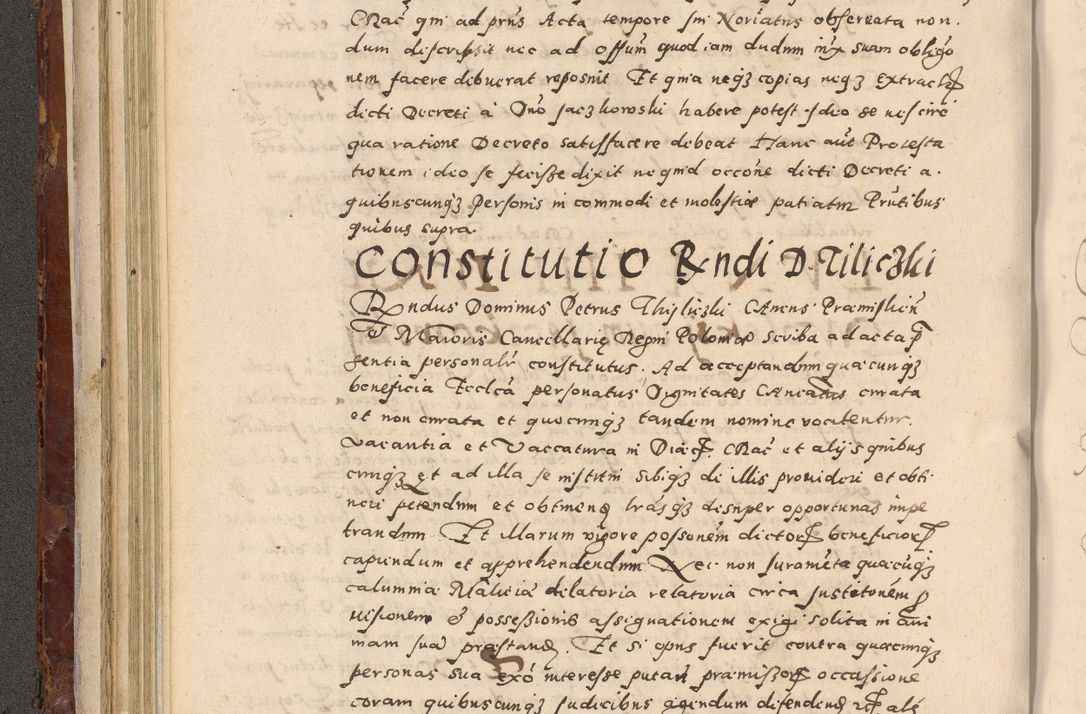 CRac̃ qm̃ ad prñs Acta tempore sui Noriatus obseruata non
dum descripsit nec ad Offũm quod iam dudum iux̃ suam obligo
nem facere debuerat reposuit Et quia neqʒ copias neqʒ Extractꝝ
dicti Decreti à Dn̄o Jaczkowski habere potest ideo se nescire
qua ratione Decreto satisfacere debeat Hanc aũt Protesta
tionem ideo se fecisse dixit ne quid occõne dicti Decreti a
quibuscunqʒ Personis in commodi et molestiæ patiatur Prñtibus
quibus supra.
Constitutio Rndi D. Tiliczki
Rndus Dominus Petrus Thijliczki CAncus Præmislien̄
& Maioris Cancellarię Regni Poloniæ scriba ad acta p̄
sentia personalr̃ constitutus. Ad acceptandum quæcunqʒ
beneficia Eccl̃cã personatus Dignitates CAncatus curata
et non curata et quocunqʒ tandem nomine vocitentur.
Vacantia et Vaccatura in Diæcꝭ. CRac̃ et alijs quibus
cunqʒ et ad illa se institui sibiqʒ de illis prouideri et obti
neri petendum et obtinenꝭ lrãsqʒ desuper opportunas impe
trandum Et illarum vigore possonem̃ dictorꝝ beneficiorꝝ
capiendum et apprehendendum Nec non Juramẽta quæcũqʒ
calumniæ Malitiæ dilatoria relatoria circa Justitonẽm ꝓ
uisionem & possessionis assignationem exigi solita in ani
mam suã præstandꝭ. Et si opus fuerit contra quascunqʒ
personas sua exõ interesse putañ præmissorꝝ occassione
coram quibuscunqʒ Judicibus agendum defendendꝭ